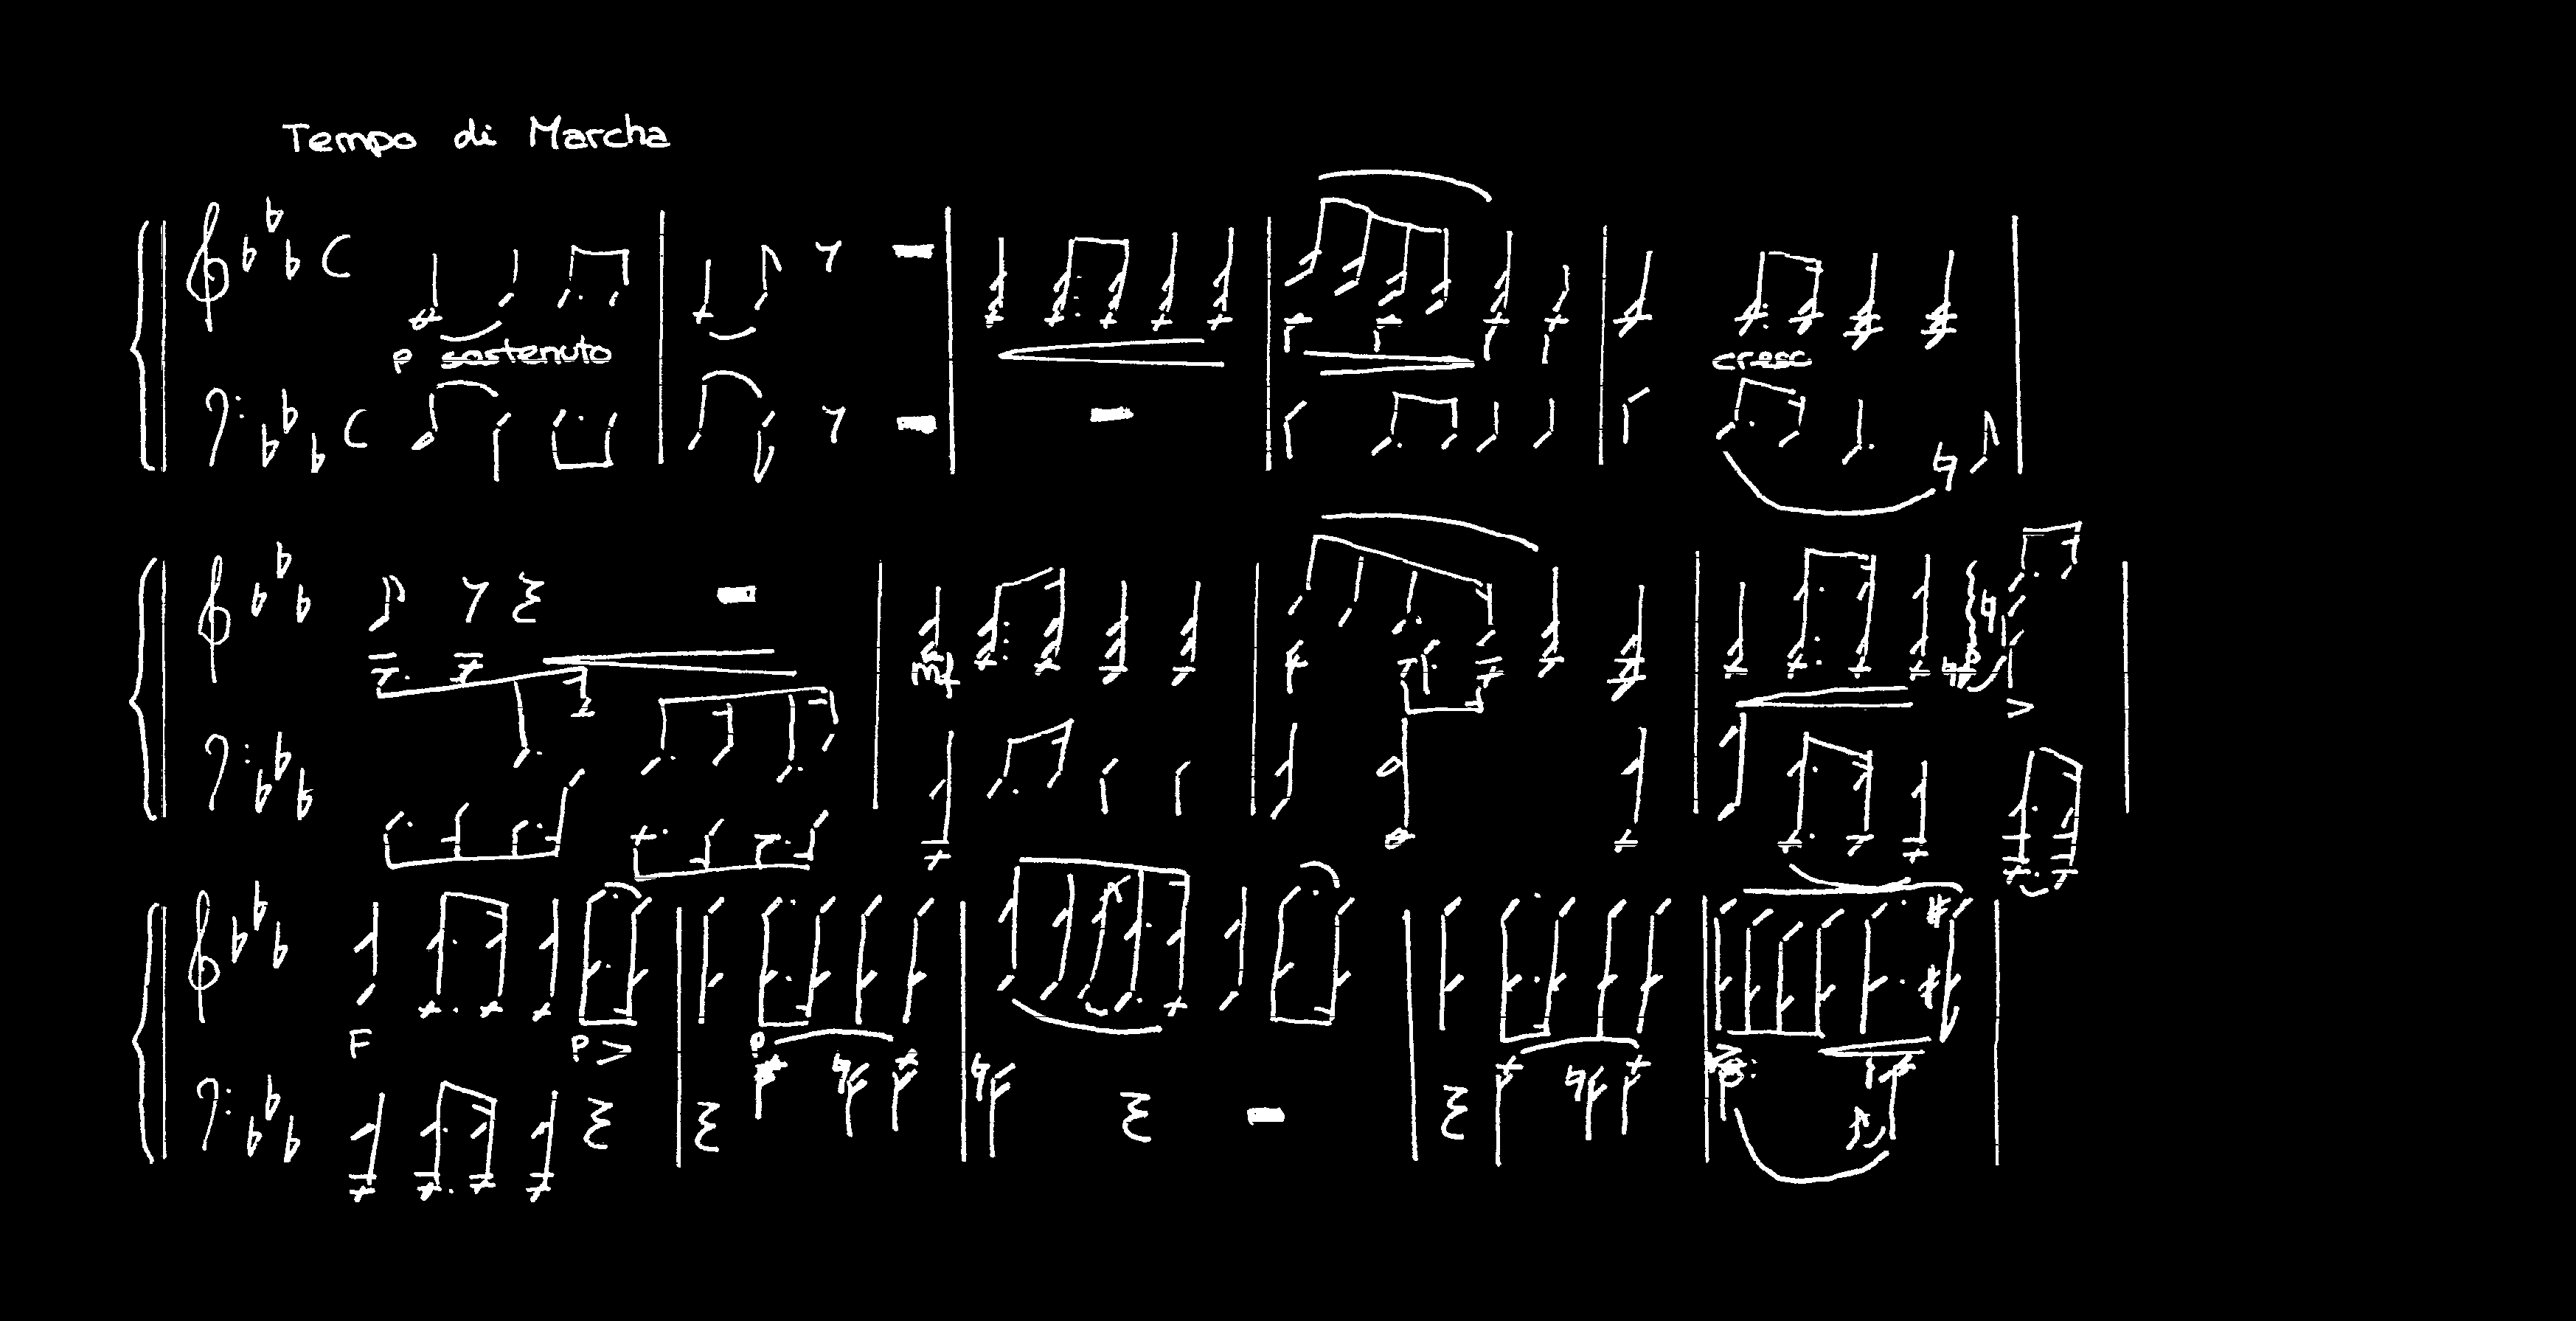 Tempo di Marcha
P sostenuto
cresc
mf
P
F P > P